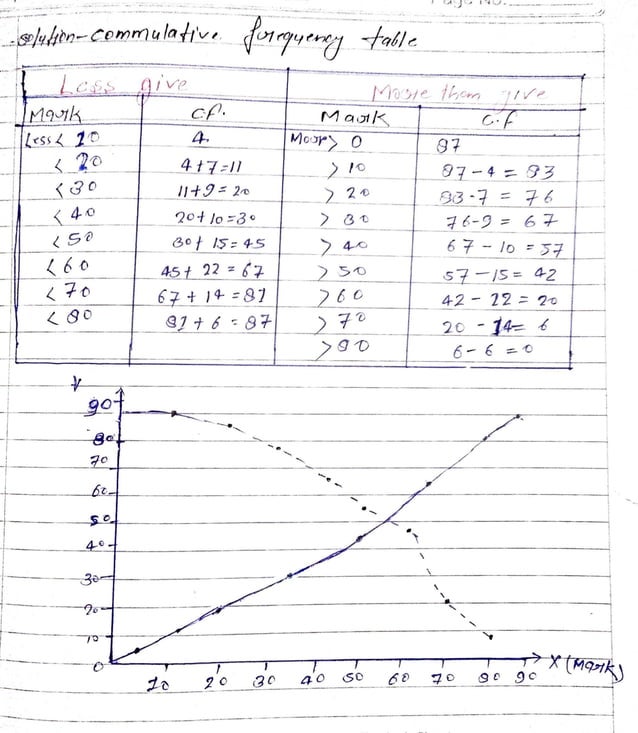 solution-commulative frequency table
Less give More than give
Mark c.f. Mark c.f
Less < 10 4 More > 0 87
< 20 4+7=11 > 10 87-4 = 83
< 30 11+9=20 > 20 83-7 = 76
< 40 20+10=30 > 30 76-9 = 67
< 50 30+15=45 > 40 67-10=57
< 60 45+22=67 > 50 57-15=42
< 70 67+14=81 > 60 42-22=20
< 80 81+6=87 > 70 20-14=6
> 80 6-6=0
Y
90
80
70
60
50
40
30
20
10
0
10 20 30 40 50 60 70 80 90 X (Mark)